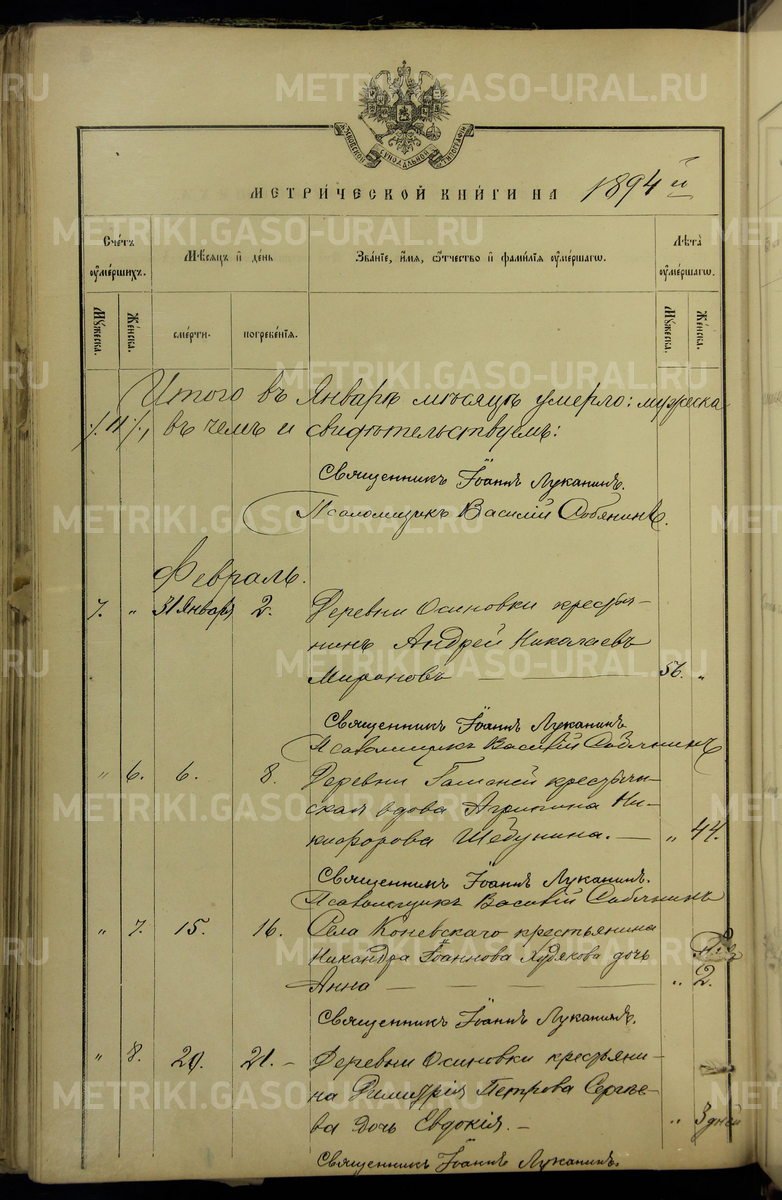 METRIKI.GASO-URAL.RU
МЕТРИ́ЧЕСКОЙ КНИ́ГИ НА 1894 й
Сче́тъ ᲂу҆ме́ршихъ.
Мѣ́сяцъ и҆ де́нь
Зва́нїе, и҆́мѧ, ѻ҆́тчество и҆ фами́лїѧ ᲂу҆ме́ршагѡ.
Лѣ́та ᲂу҆ме́ршагѡ.
Мꙋ́жеска.
Же́нска.
сме́рти.
погребе́нїѧ.
Мꙋ́жеска.
Же́нска.
Итого въ Январѣ мѣсяцѣ умерло: мужеска
въ чемъ и свидѣтельствуемъ:
Священникъ Іоаннъ Луканинъ.
Псаломщикъ Василій Собянинъ.
Февраль.
7. " 31 Января 2. Деревни Осиновки крестья-
нинъ Андрей Николаевъ
Мироновъ — 56. "
Священникъ Іоаннъ Луканинъ.
Псаломщикъ Василій Собянинъ
" 6. 6. 8. Деревни крестьян-
ская вдова Агрипина Ни-
кифорова Шебунина. — " 44.
Священникъ Іоаннъ Луканинъ.
Псаломщикъ Василій Собянинъ
" 7. 15. 16. Села Коневскаго крестьянина
Никандра Іоаннова Худякова дочь
Анна — " 2.
Священникъ Іоаннъ Луканинъ.
" 8. 20. 21. – Деревни Осиновки крестьяни-
на Димитрія Петрова Сергѣе-
ва дочь Евдокія. – " 3 дней
Священникъ Іоаннъ Луканинъ.